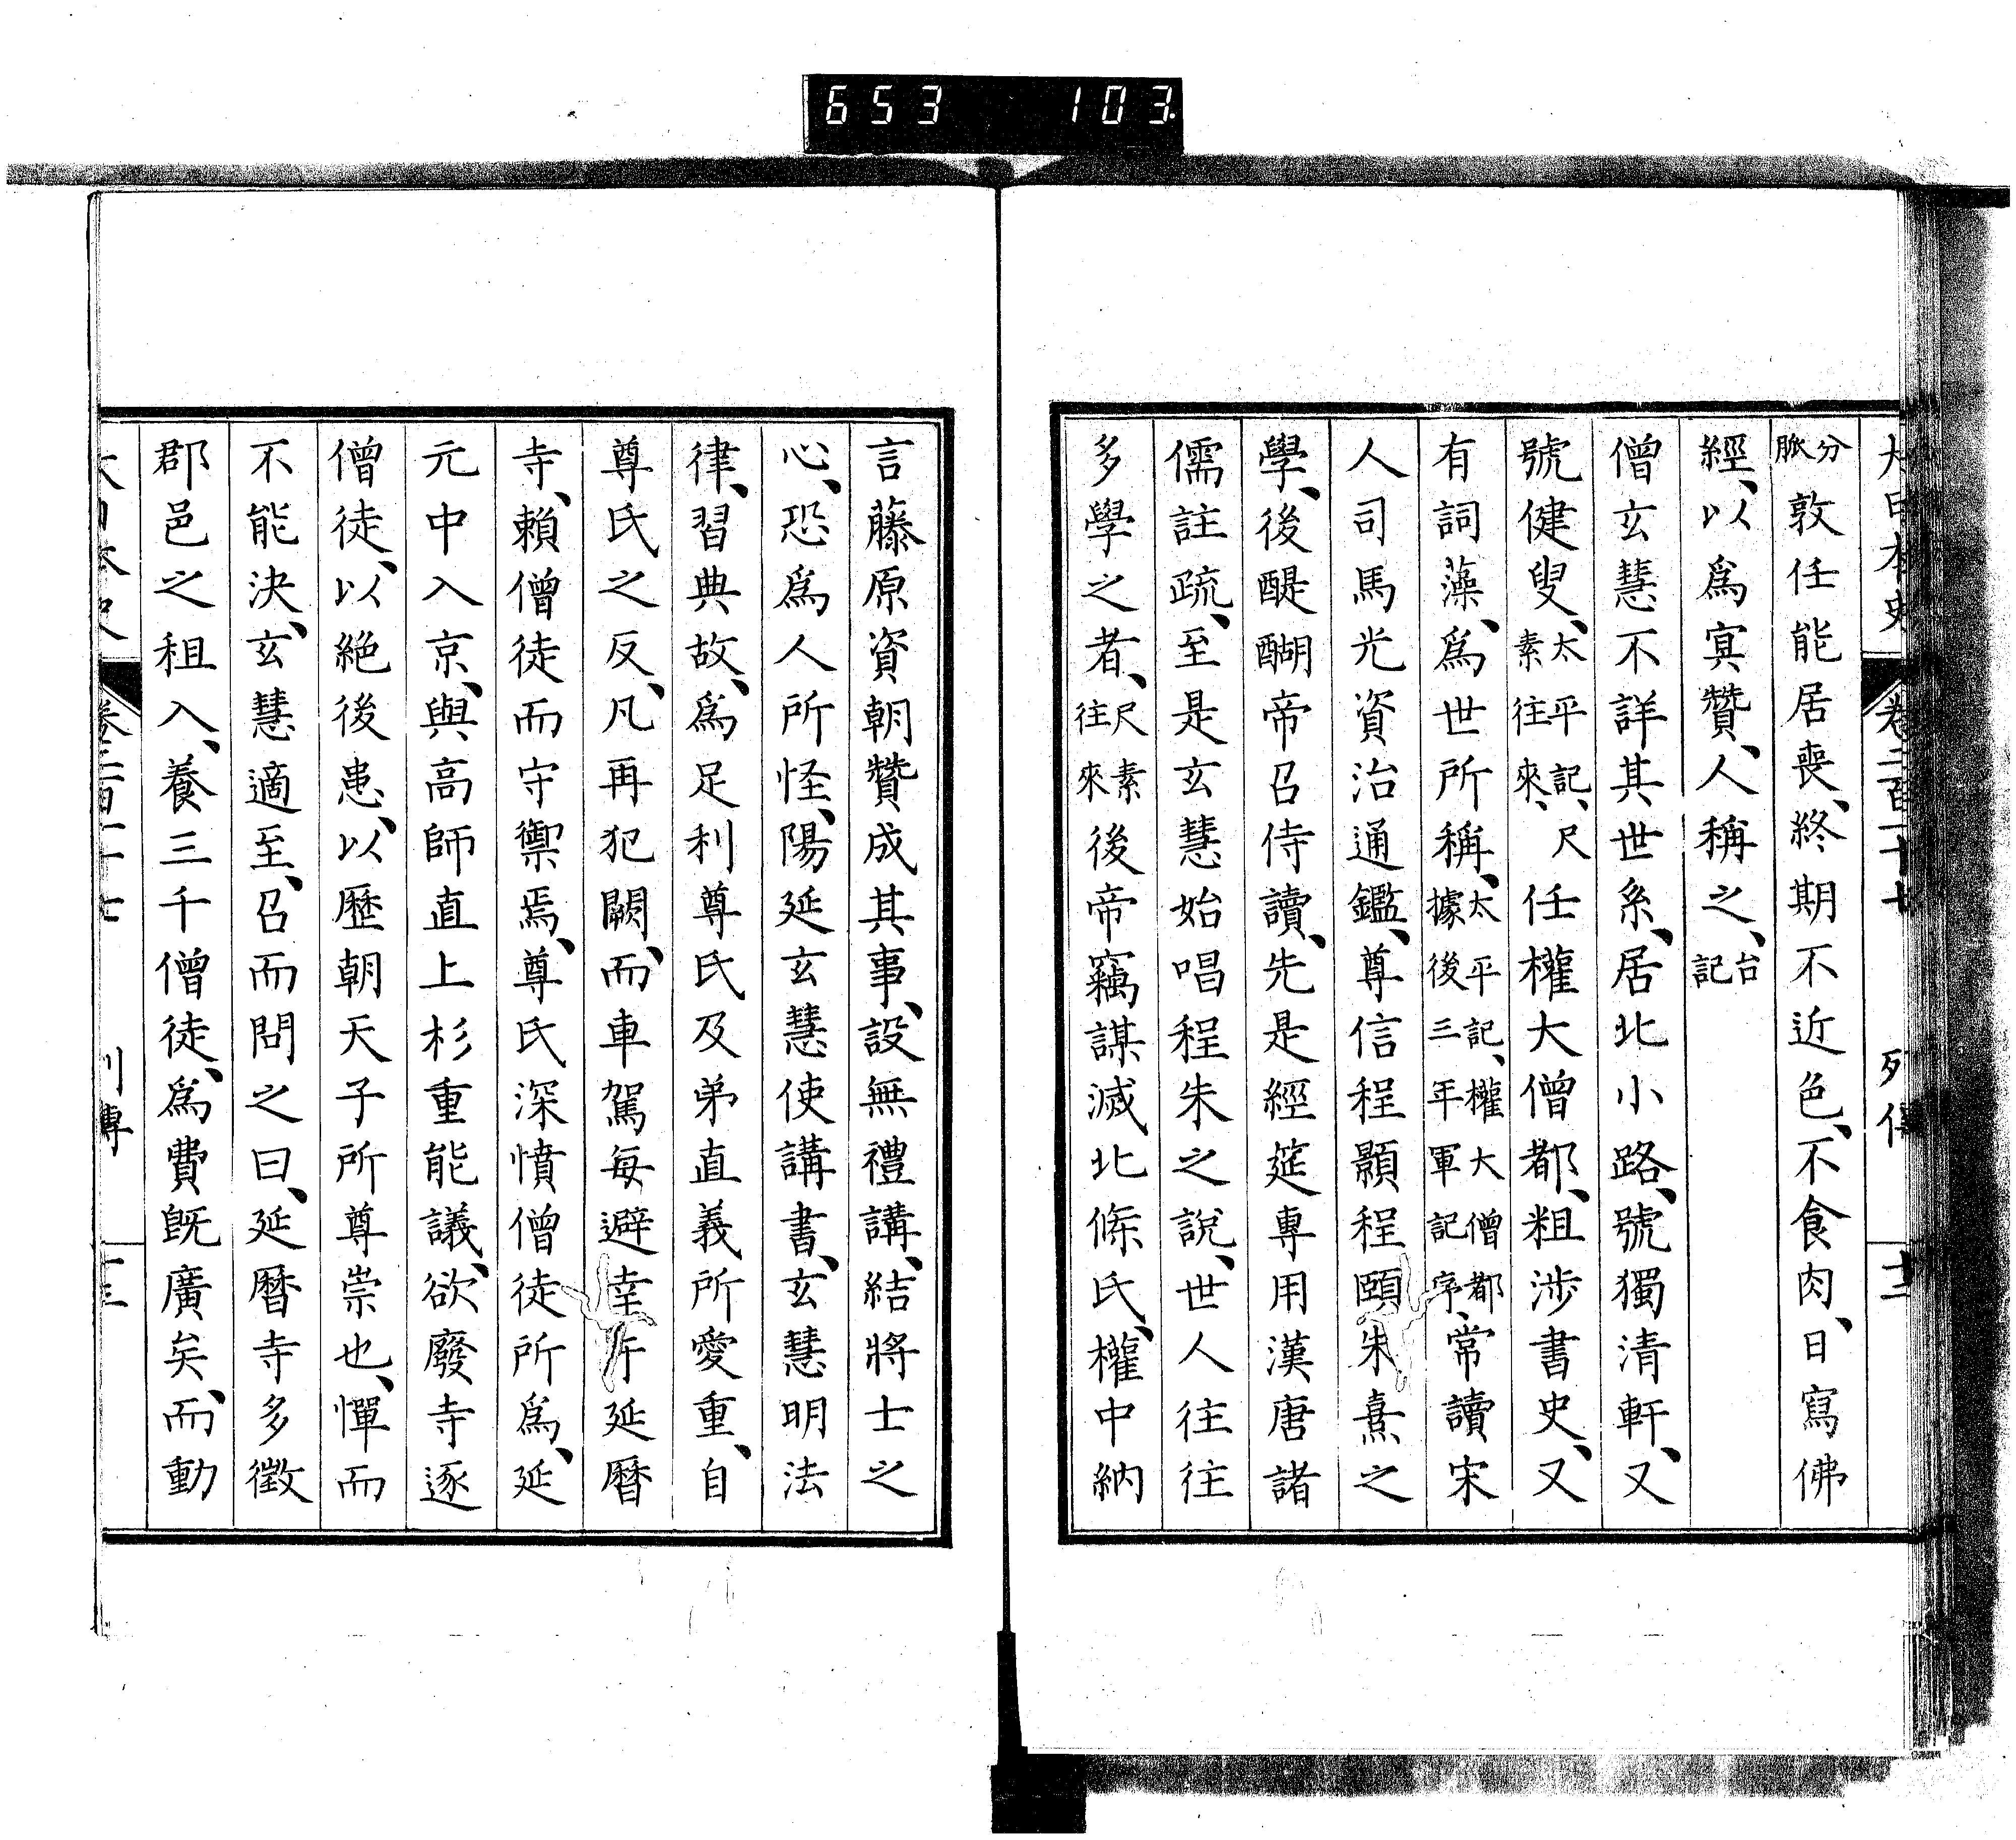 653 103
大日本史 卷二百一十七 列傳 十二
分脈敦任能居喪、終期不近色、不食肉、日寫佛
經、以爲冥贊、人稱之、台記
僧玄慧不詳其世系、居北小路、號獨清軒、又
號健叟、太平記、尺素往來、任權大僧都、粗涉書史、又
有詞藻、爲世所稱、太平記、權大僧都據後三年軍記序、常讀宋
人司馬光資治通鑑、尊信程顥程頤朱熹之
學、後醍醐帝召侍讀、先是經筵專用漢唐諸
儒註疏、至是玄慧始唱程朱之說、世人往往
多學之者、尺素往來後帝竊謀滅北條氏、權中納
言藤原資朝贊成其事、設無禮講、結將士之
心、恐爲人所怪、陽延玄慧使講書、玄慧明法
律、習典故、爲足利尊氏及弟直義所愛重、自
尊氏之反、凡再犯闕、而車駕每避幸于延曆
寺、賴僧徒而守禦焉、尊氏深憤僧徒所爲、延
元中入京、與高師直上杉重能議、欲廢寺逐
僧徒、以絕後患、以歷朝天子所尊崇也、憚而
不能決、玄慧適至、召而問之曰、延曆寺多徵
郡邑之租入、養三千僧徒、爲費既廣矣、而動